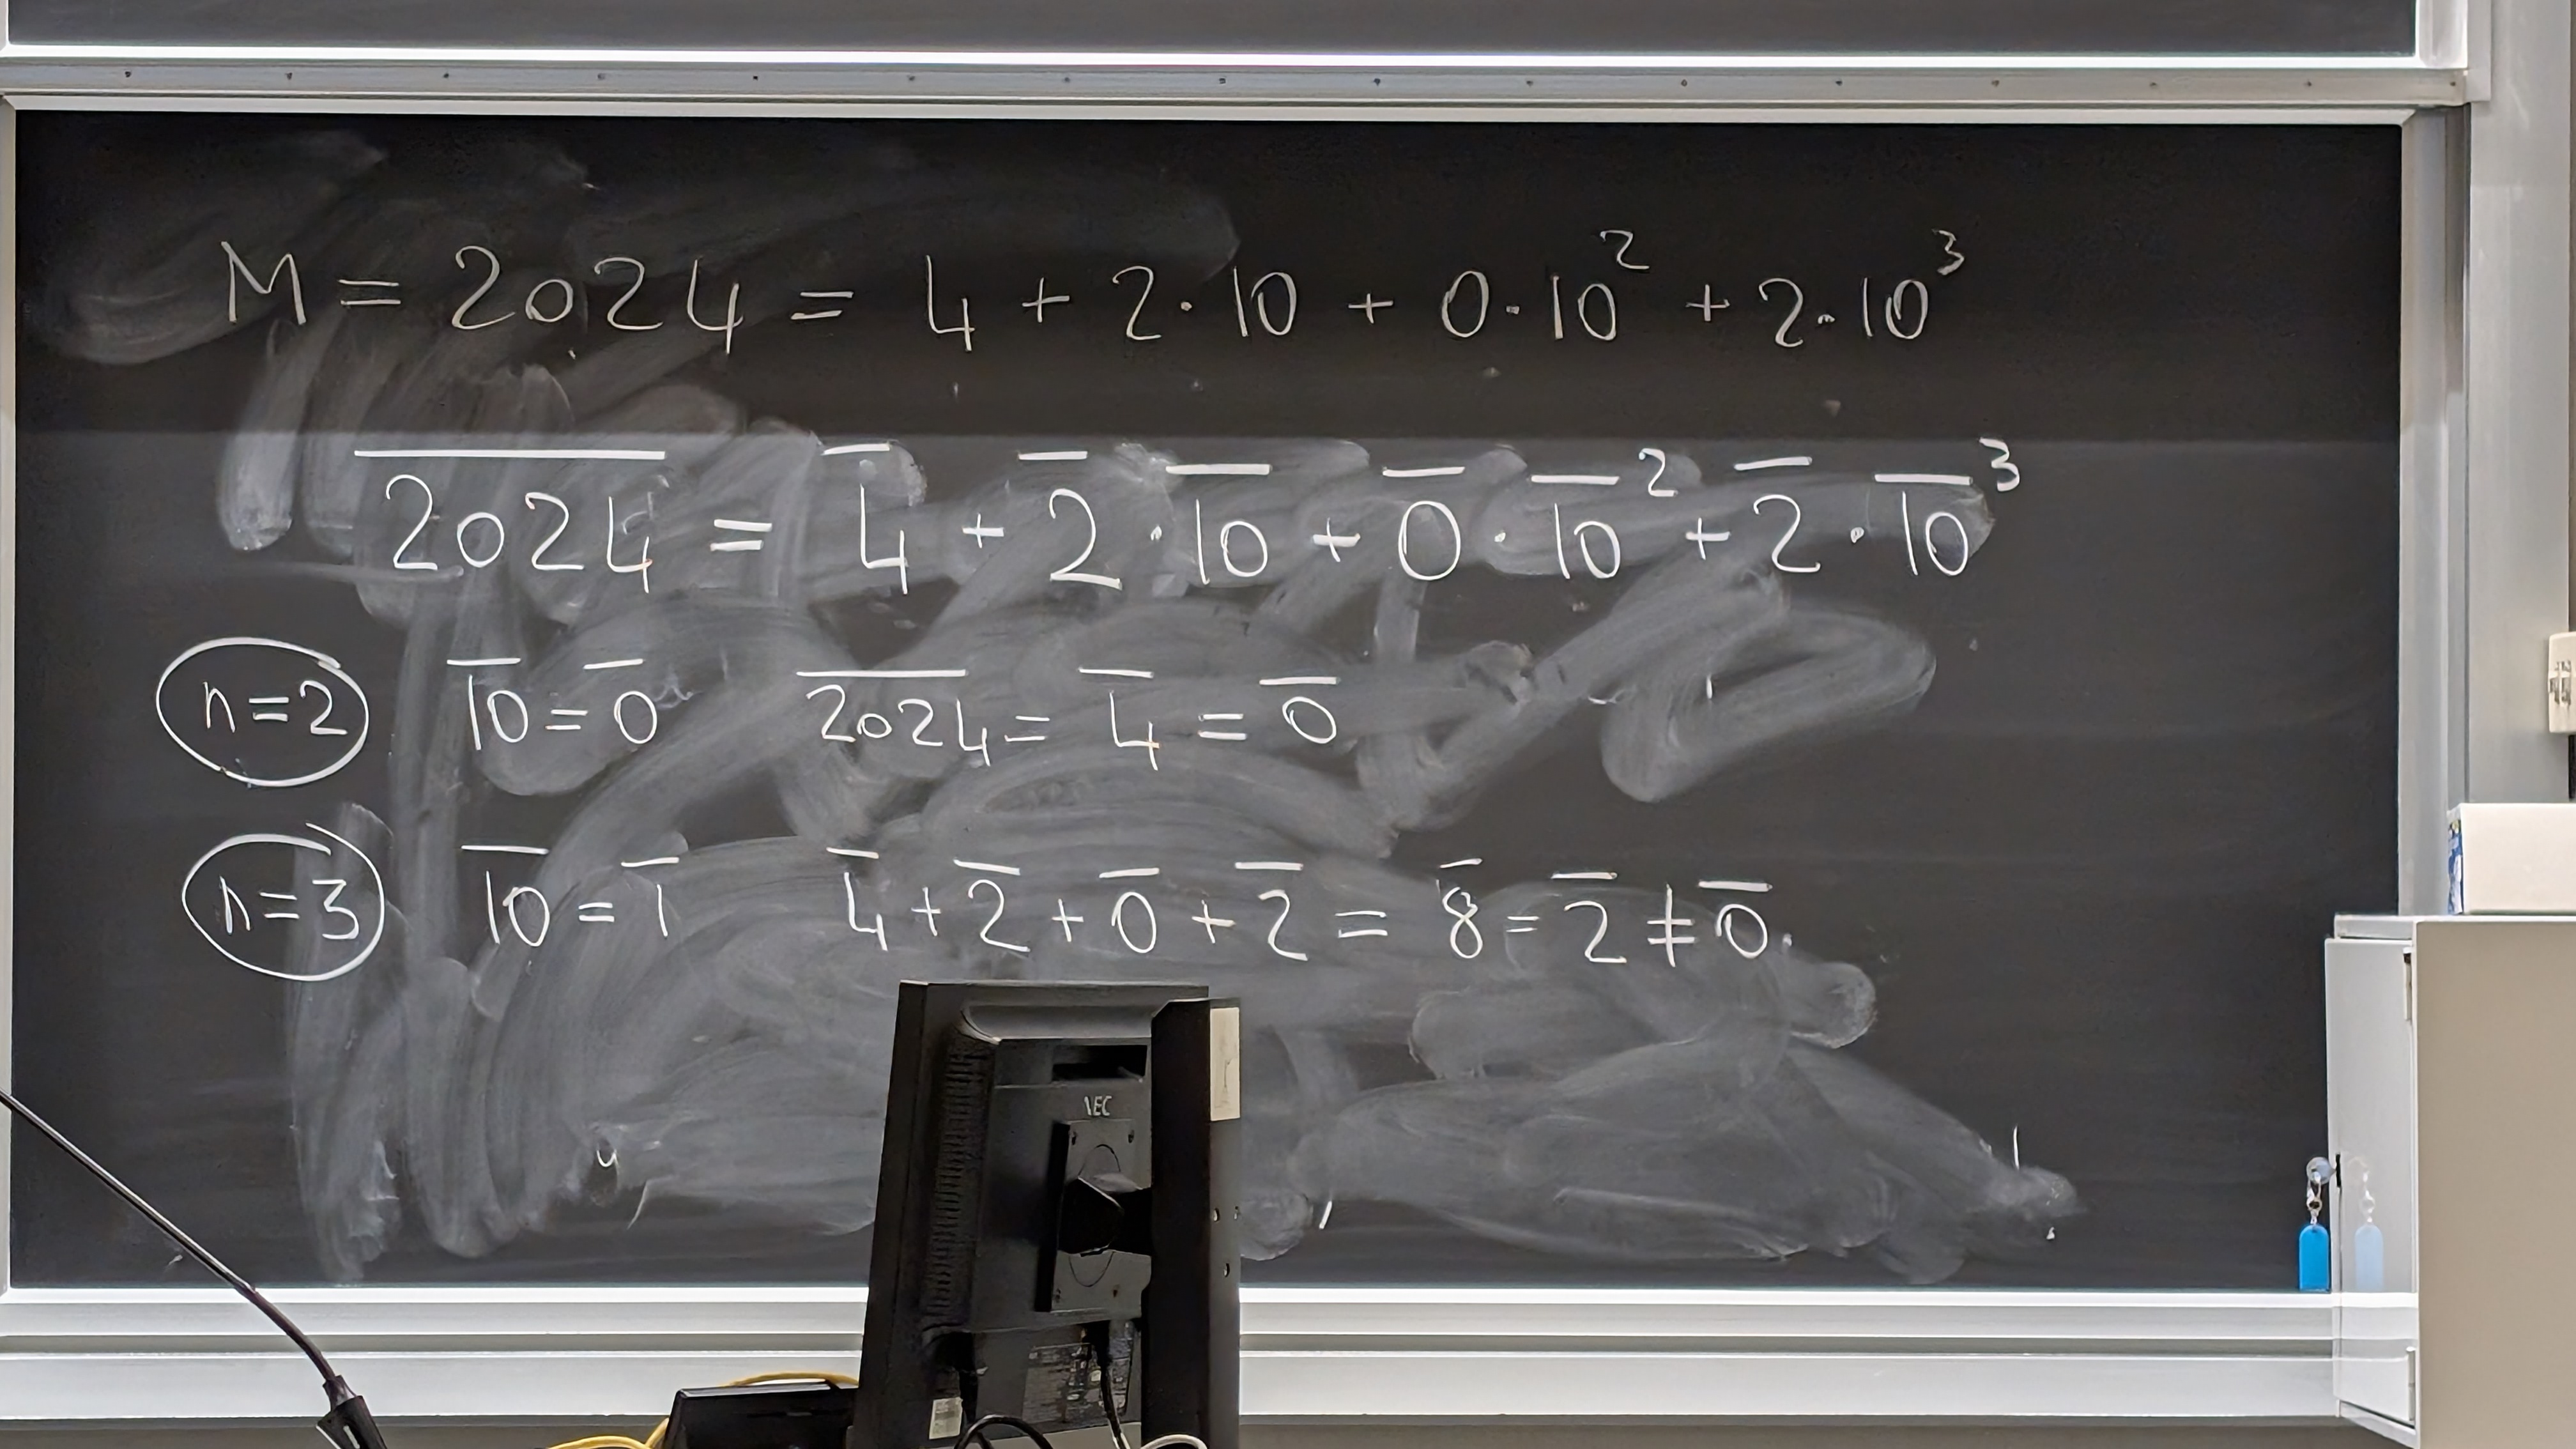 M = 2024 = 4 + 2·10 + 0·10² + 2·10³
2̅0̅2̅4̅ = 4̅ + 2̅·1̅0̅ + 0̅·1̅0̅² + 2̅·1̅0̅³
n=2 1̅0̅ = 0̅ 2̅0̅2̅4̅ = 4̅ = 0̅
n=3 1̅0̅ = 1̅ 4̅ + 2̅ + 0̅ + 2̅ = 8̅ = 2̅ ≠ 0̅.
NEC